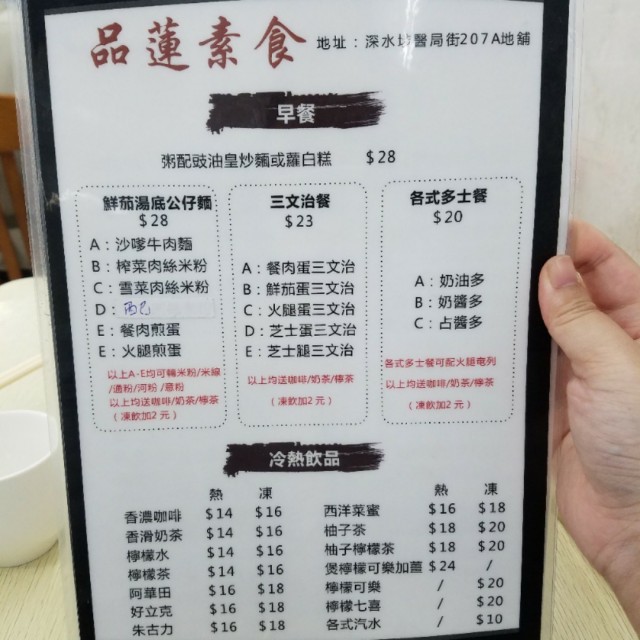 品蓮素食 地址：深水埗醫局街207A地舖
早餐
粥配豉油皇炒麵或蘿白糕 $28
鮮茄湯底公仔麵
$28
A：沙嗲牛肉麵
B：榨菜肉絲米粉
C：雪菜肉絲米粉
D：
E：餐肉煎蛋
E：火腿煎蛋
以上A-E均可轉米粉/米線
/通粉/河粉/意粉
以上均送咖啡/奶茶/檸茶
（凍飲加2元）
三文治餐
$23
A：餐肉蛋三文治
B：鮮茄蛋三文治
C：火腿蛋三文治
D：芝士蛋三文治
E：芝士腿三文治
以上均送咖啡/奶茶/檸茶
（凍飲加2元）
各式多士餐
$20
A：奶油多
B：奶醬多
C：占醬多
各式多士餐可配火腿奄列
以上均送咖啡/奶茶/檸茶
（凍飲加2元）
冷熱飲品
熱 凍
香濃咖啡 $14 $16
香滑奶茶 $14 $16
檸檬水 $14 $16
檸檬茶 $14 $16
阿華田 $16 $18
好立克 $16 $18
朱古力 $16 $18
熱 凍
西洋菜蜜 $16 $18
柚子茶 $18 $20
柚子檸檬茶 $18 $20
煲檸檬可樂加薑 $24 /
檸檬可樂 / $20
檸檬七喜 / $20
各式汽水 / $10